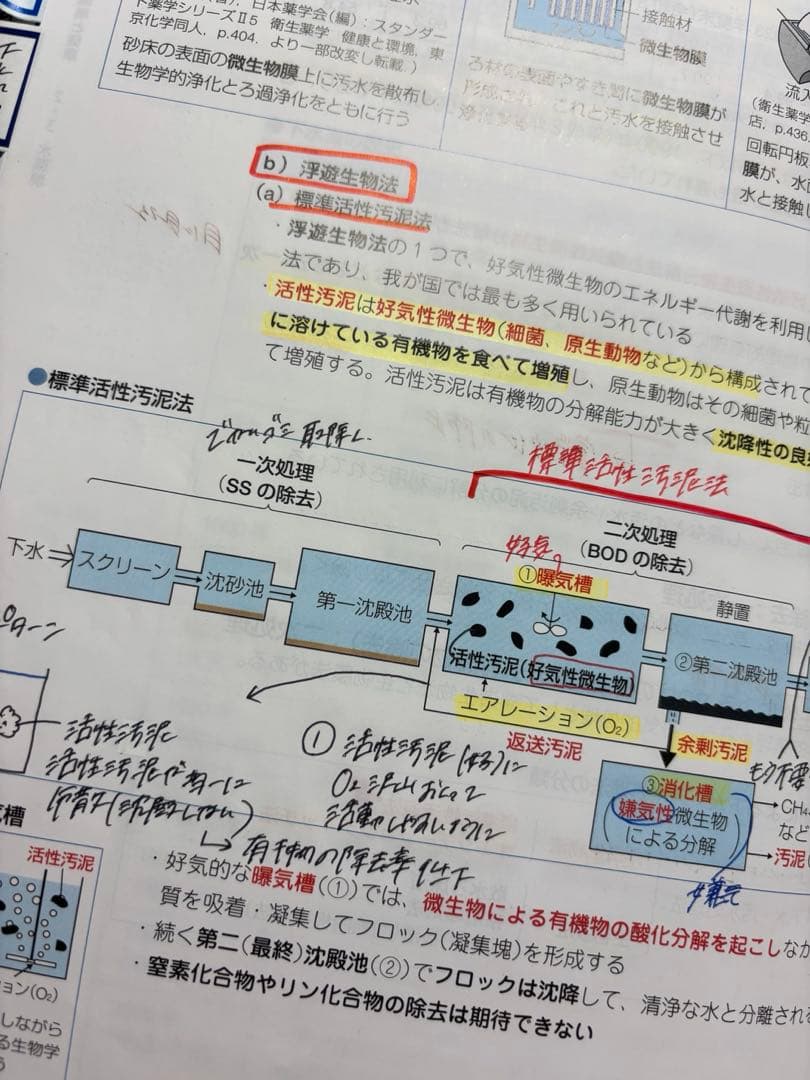 日本薬学会(編):スタンダー
ド薬学シリーズⅡ5 衛生薬学 健康と環境,東
京化学同人,p.404.より一部改変し転載.)
砂床の表面の微生物膜上に汚水を散布し,
生物学的浄化とろ過浄化をともに行う
接触材
微生物膜
ろ材の表面やすき間に微生物膜が
これと汚水を接触させ
流入
(衛生薬学
店,p.436.
回転円板
膜が,水面
水と接触し
b)浮遊生物法
(a)標準活性汚泥法
・浮遊生物法の1つで,好気性微生物のエネルギー代謝を利用し
法であり,我が国では最も多く用いられている
・活性汚泥は好気性微生物(細菌,原生動物など)から構成されて
に溶けている有機物を食べて増殖し,原生動物はその細菌や粒
て増殖する。活性汚泥は有機物の分解能力が大きく沈降性の良
●標準活性汚泥法
取除く
標準活性汚泥法
一次処理
(SSの除去)
二次処理
(BODの除去)
下水
スクリーン
沈砂池
第一沈殿池
好気
①曝気槽
活性汚泥(好気性微生物)
静置
②第二沈殿池
エアレーション(O₂)
返送汚泥
余剰汚泥
③消化槽
嫌気性微生物
による分解
CH₄
など
汚泥
活性汚泥
活性汚泥が
① 活性汚泥(好)に
O₂沢山
有機物の除去率低下
気槽
活性汚泥
ョン(O₂)
しながら
る生物学
・好気的な曝気槽(①)では,微生物による有機物の酸化分解を起こしなが
質を吸着・凝集してフロック(凝集塊)を形成する
・続く第二(最終)沈殿池(②)でフロックは沈降して,清浄な水と分離される
・窒素化合物やリン化合物の除去は期待できない